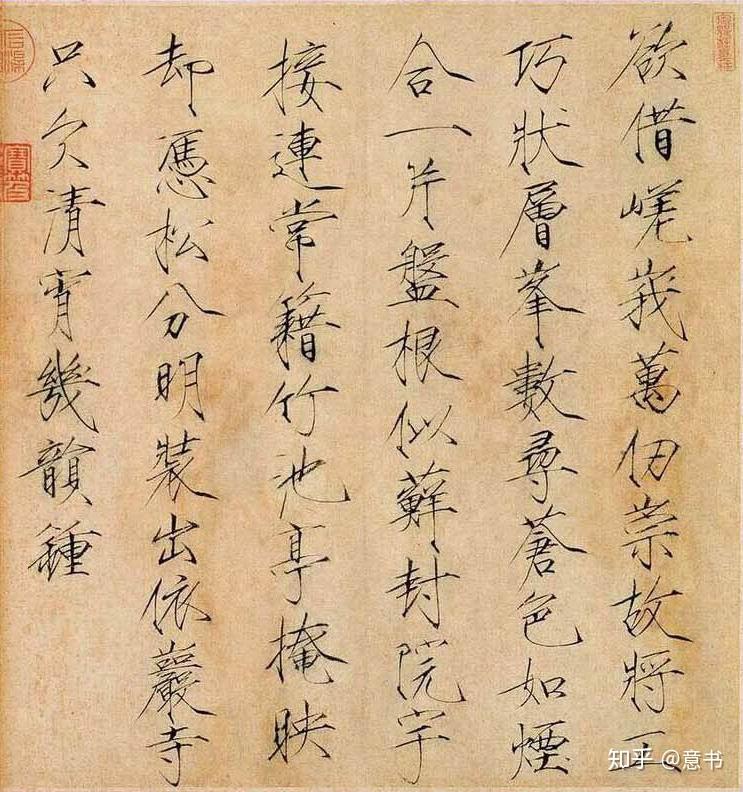 欲借嵯峨萬仞崇故將工
巧狀層峯數尋蒼色如煙
合一片盤根似蘚封院宇
接連常籍竹池亭掩映
却憑松分明裝出依巖寺
只欠清宵幾韻鍾
知乎 @意书